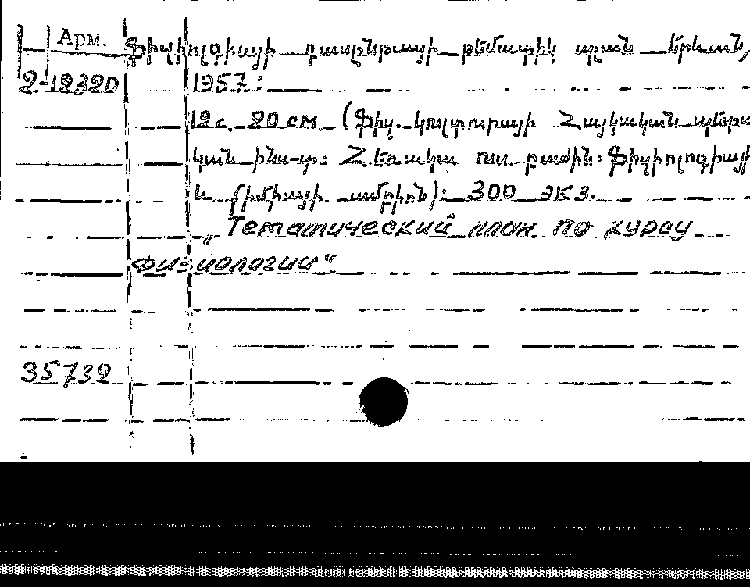 Арм. Ֆիզիոլոգիայի դասընթացի թեմատիկ պլան Երևան,
2-12320 1957:
12 с. 20 см (Ֆիզ. կուլտուրայի Հայկական պետա
կան ինս-տ: Հեռակա ուս. բաժին: Ֆիզիոլոգիայի
և քիմիայի ամբիոն): 300 экз.
„Тематический план по курсу
физиологии“
35732